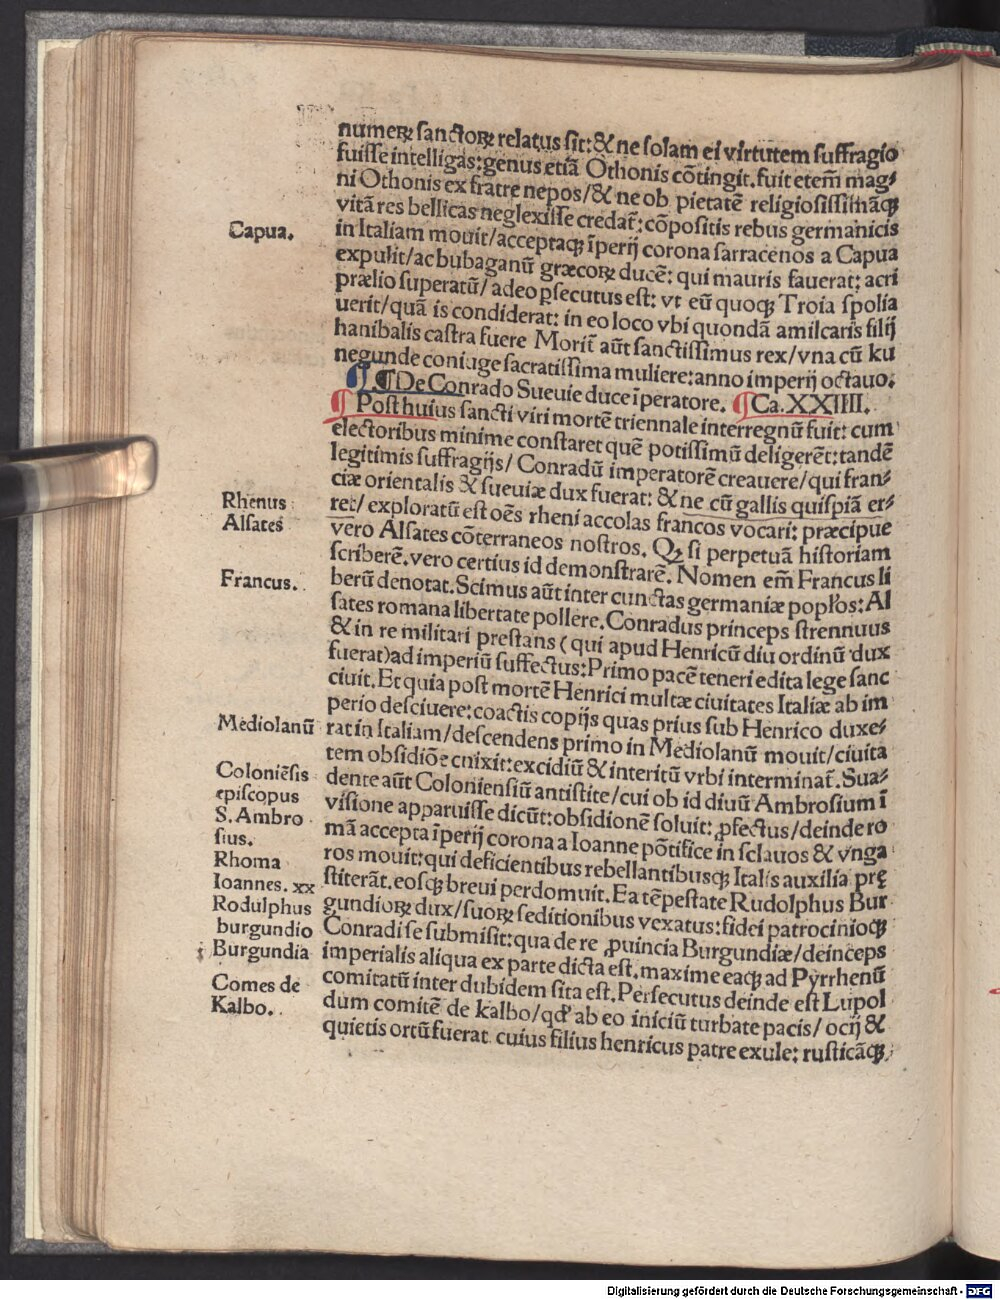 numeꝝ sanctoꝝ relatus sit: & ne solam ei virtutem suffragio
fuisse intelligas: genus etiā Othonis cōtingit. fuit etem̄ mag⸗
ni Othonis ex fratre nepos/ & ne ob pietatē religiosissimāqꝫ
vitā res bellicas neglexisse credat̄: cōpositis rebus germanicis
Capua.
in Italiam mouit/ acceptaqꝫ īperij corona sarracenos a Capua
expulit/ ac bubaganū græcoꝝ ducē: qui mauris fauerat: acri
prælio superatū/ adeo ꝑsecutus est: vt eū quoqꝫ Troia spolia
uerit/ quā is condiderat: in eo loco vbi quondā amilcaris filij
hanibalis castra fuere Morit̄ aūt sanctissimus rex/ vna cū ku
negunde coniuge sacratissima muliere: anno imperij octauo.
¶ ¶ De Conrado Sueuie duce īperatore. ¶ Ca. XXIIII.
¶ Post huius sancti viri mortē triennale interregnū fuit: cum
electoribus minime constaret quē potissimū deligerēt: tandē
legitimis suffragijs/ Conradū imperatorē creauere/ qui fran⸗
ciæ orientalis & sueuiæ dux fuerat: & ne cū gallis quispiā er⸗
Rhenus
ret/ exploratū est oēs rheni accolas francos vocari: præcipue
Alsates
vero Alsates cōterraneos nostros. Qꝫ si perpetuā historiam
scriberē. vero certius id demonstrarē. Nomen em̄ Francus li
Francus.
berū denotat. Scimus aūt inter cunctas germaniæ popl'os: Al
sates romana libertate pollere. Conradus princeps strennuus
& in re militari prestans ( qui apud Henricū diu ordinū dux
fuerat) ad imperiū suffectus: Primo pacē teneri edita lege sanc
ciuit. Et quia post mortē Henrici multæ ciuitates Italiæ ab im
perio desciuere: coactis copijs quas prius sub Henrico duxe⸗
Mediolanū
rat in Italiam/ descendens primo in Mediolanū mouit/ ciuita
tem obsidiōe cnixit: excidiū & interitū vrbi interminat̄. Sua⸗
Coloniēsis
dente aūt Coloniensiū antistite/ cui ob id diuū Ambrosium ī
episcopus
visione apparuisse dicūt: obsidionē soluit: ꝓfectus/ deinde ro
S. Ambro
mā accepta īperij corona a Ioanne pōtifice in sclauos & vnga
sius.
Rhoma
ros mouit: qui deficientibus rebellantibusqꝫ Italis auxilia prę
Ioannes. xx
stiterāt. eosqꝫ breui perdomuit. Ea tēpestate Rudolphus Bur
Rodulphus
gundioꝝ dux/ suoꝝ seditionibus vexatus: fidei patrocinioqꝫ
burgundio
Conradi se submisit: qua de re ꝓuincia Burgundiæ/ deinceps
Burgundia
imperialis aliqua ex parte dicta est. maxime eaqꝫ ad Pyrrhenū
Comes de
comitatū inter dubidem sita est. Persecutus deinde est Lupol
Kalbo.
dum comitē de kalbo/ qd' ab eo iniciū turbate pacis/ ocij &
quietis ortū fuerat. cuius filius henricus patre exule: rusticāqꝫ
Digitalisierung gefördert durch die Deutsche Forschungsgemeinschaft - DFG